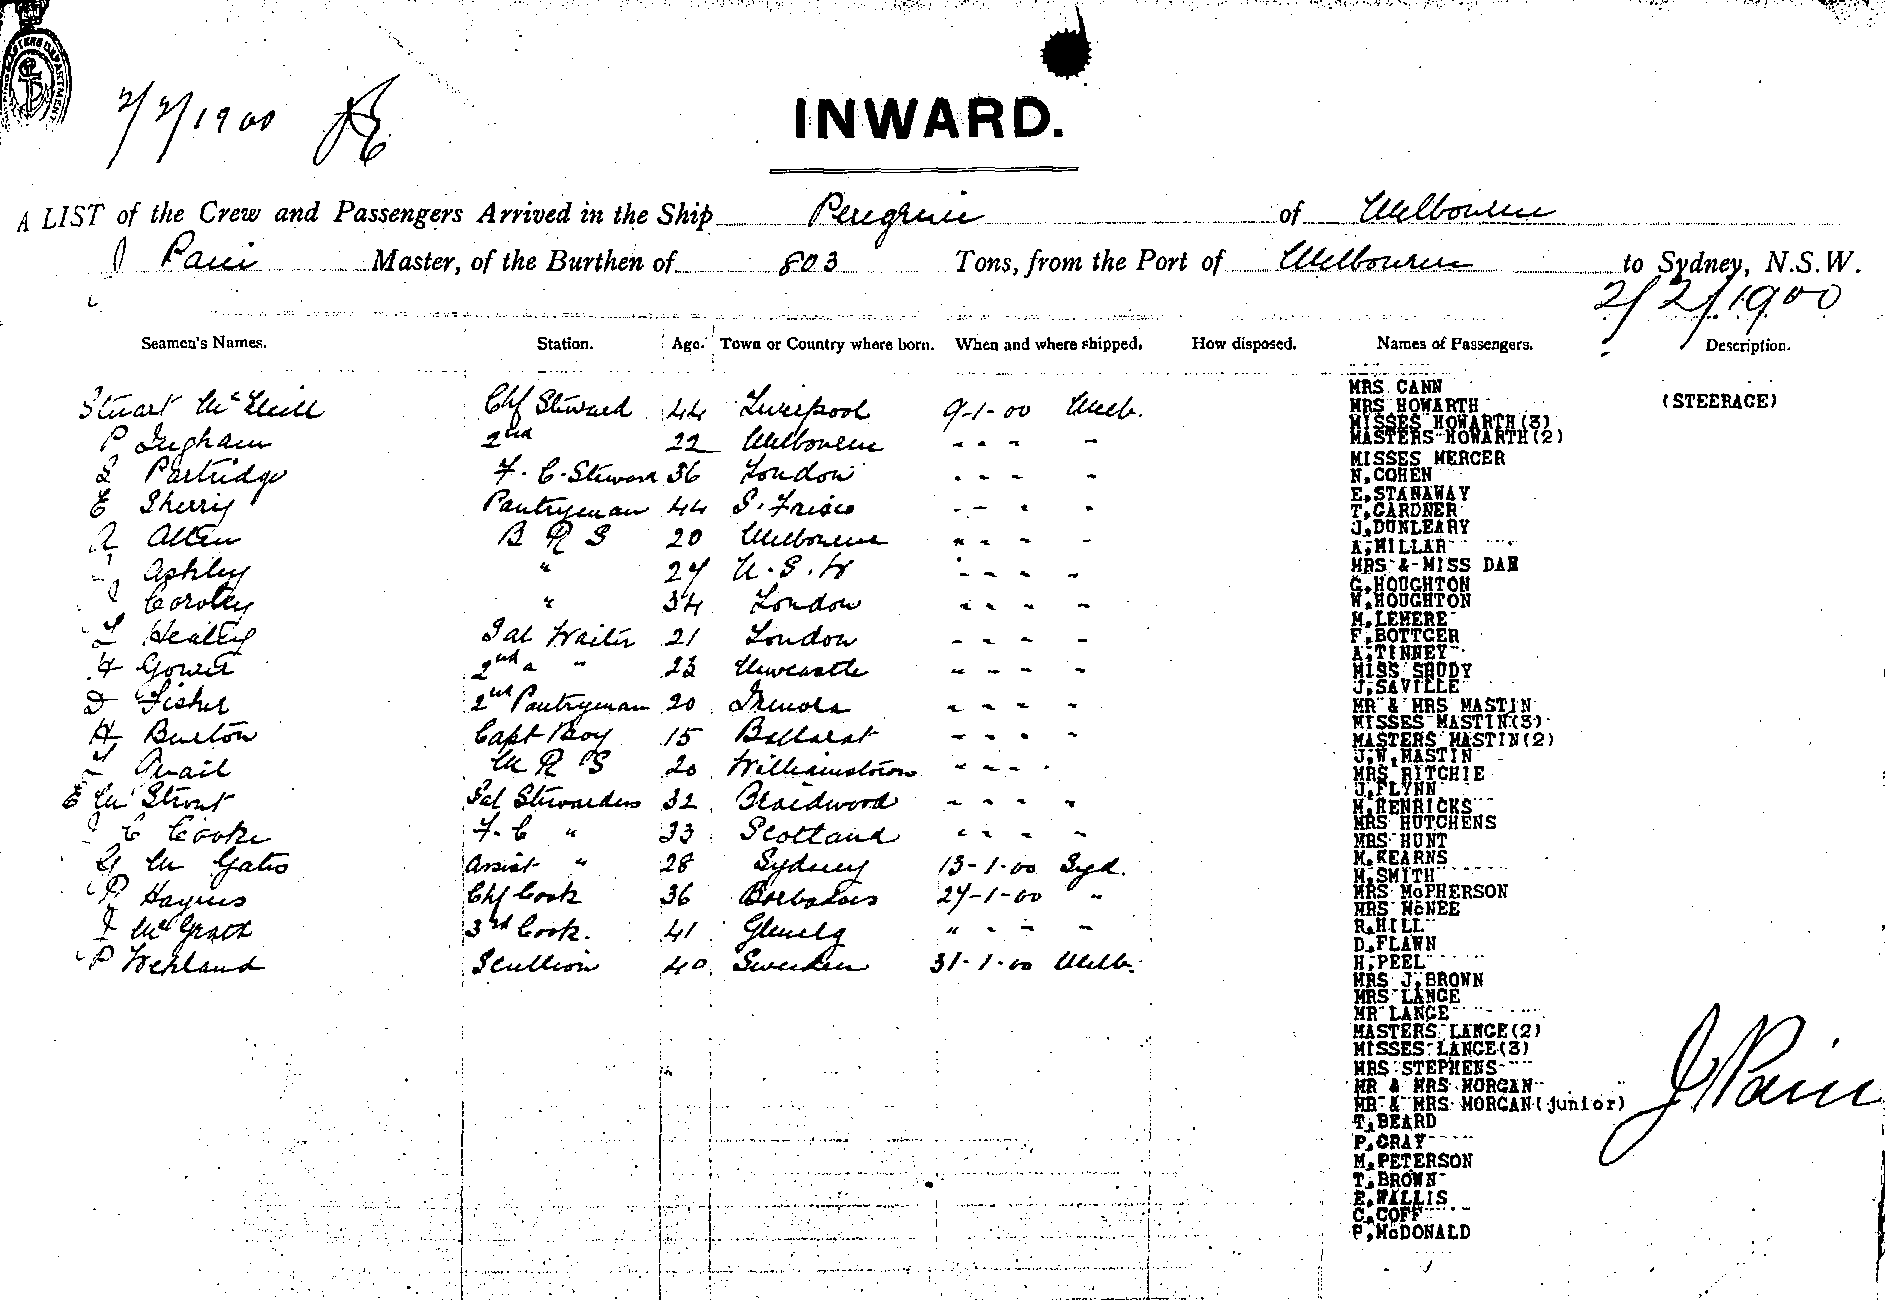 2/2/1900
INWARD.
A LIST of the Crew and Passengers Arrived in the Ship Peregrine of Melbourne
J Pain Master, of the Burthen of 803 Tons, from the Port of Melbourne to Sydney, N.S.W.
2/2/1900
Seamen's Names. Station. Age. Town or Country where born. When and where shipped. How disposed. Names of Passengers. Description.
Stuart McNeill Chf Steward 44 Liverpool 9-1-00 Melb.
P Ingham 2nd 22 Melbourne - - - -
S Partridge F. C. Steward 36 London - - - -
E Sherry Pantryman 44 S. Frisco - - - -
A Allen B R S 20 Melbourne " - - -
Ashley " 27 N. S. W - - - -
Coroley " 34 London - - - -
Healey Sal Waiter 21 London - - - -
Gower 2nd " 23 Newcastle - - - -
D Fisher 2nd Pantryman 20 - - - -
H Burton Capt Boy 15 Ballarat - - - -
Quail M R S 20 Williamstown - - - -
E M Strout Sal Stewardess 32 Braidwood - - - -
C Cooke F. C " 33 Scotland - - - -
G M Gates Assist " 28 Sydney 13-1-00 Syd.
P Haynes Chf Cook 36 Barbados 27-1-00 "
McGrath 3rd Cook. 41 Glenelg " - - -
P Wehland Scullion 40 Sweden 31-1-00 Melb.
MRS CANN (STEERAGE)
MRS HOWARTH
MISSES HOWARTH(3)
MASTERS HOWARTH(2)
MISSES MERCER
N,COHEN
E,STANAWAY
T,GARDNER
J,DUNLEARY
A,MILLAR
MRS & MISS DAN
G,HOUGHTON
W,HOUGHTON
M,LEMERE
F,BOTTGER
A,TINNEY
MISS SHUDY
J,SAVILLE
MR & MRS MASTIN
MISSES MASTIN(3)
MASTERS MASTIN(2)
J,W,MASTIN
MRS RITCHIE
J,FLYNN
M,HENRICKS
MRS HUTCHENS
MRS HUNT
M,KEARNS
M,SMITH
MRS McPHERSON
MRS McNEE
R,HILL
D,FLAWN
H,PEEL
MRS J,BROWN
MRS LANGE
MR LANGE
MASTERS LANGE(2)
MISSES LANGE(3)
MRS STEPHENS
MR & MRS MORGAN
MR & MRS MORGAN(junior)
T,BEARD
P,GRAY
M,PETERSON
T,BROWN
E,WALLIS
C,COFF
P,McDONALD
J Pain